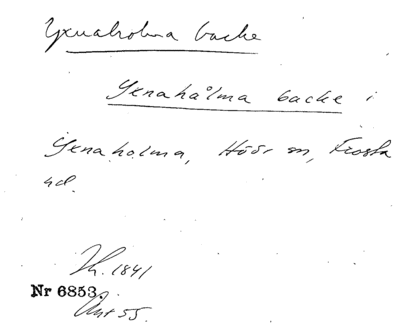 Yxnaholma backe
Yxnahålma backe i
Yxnaholma, Höör sn, Frosta
hd.
Th. 1841
Nr 6853.
55.